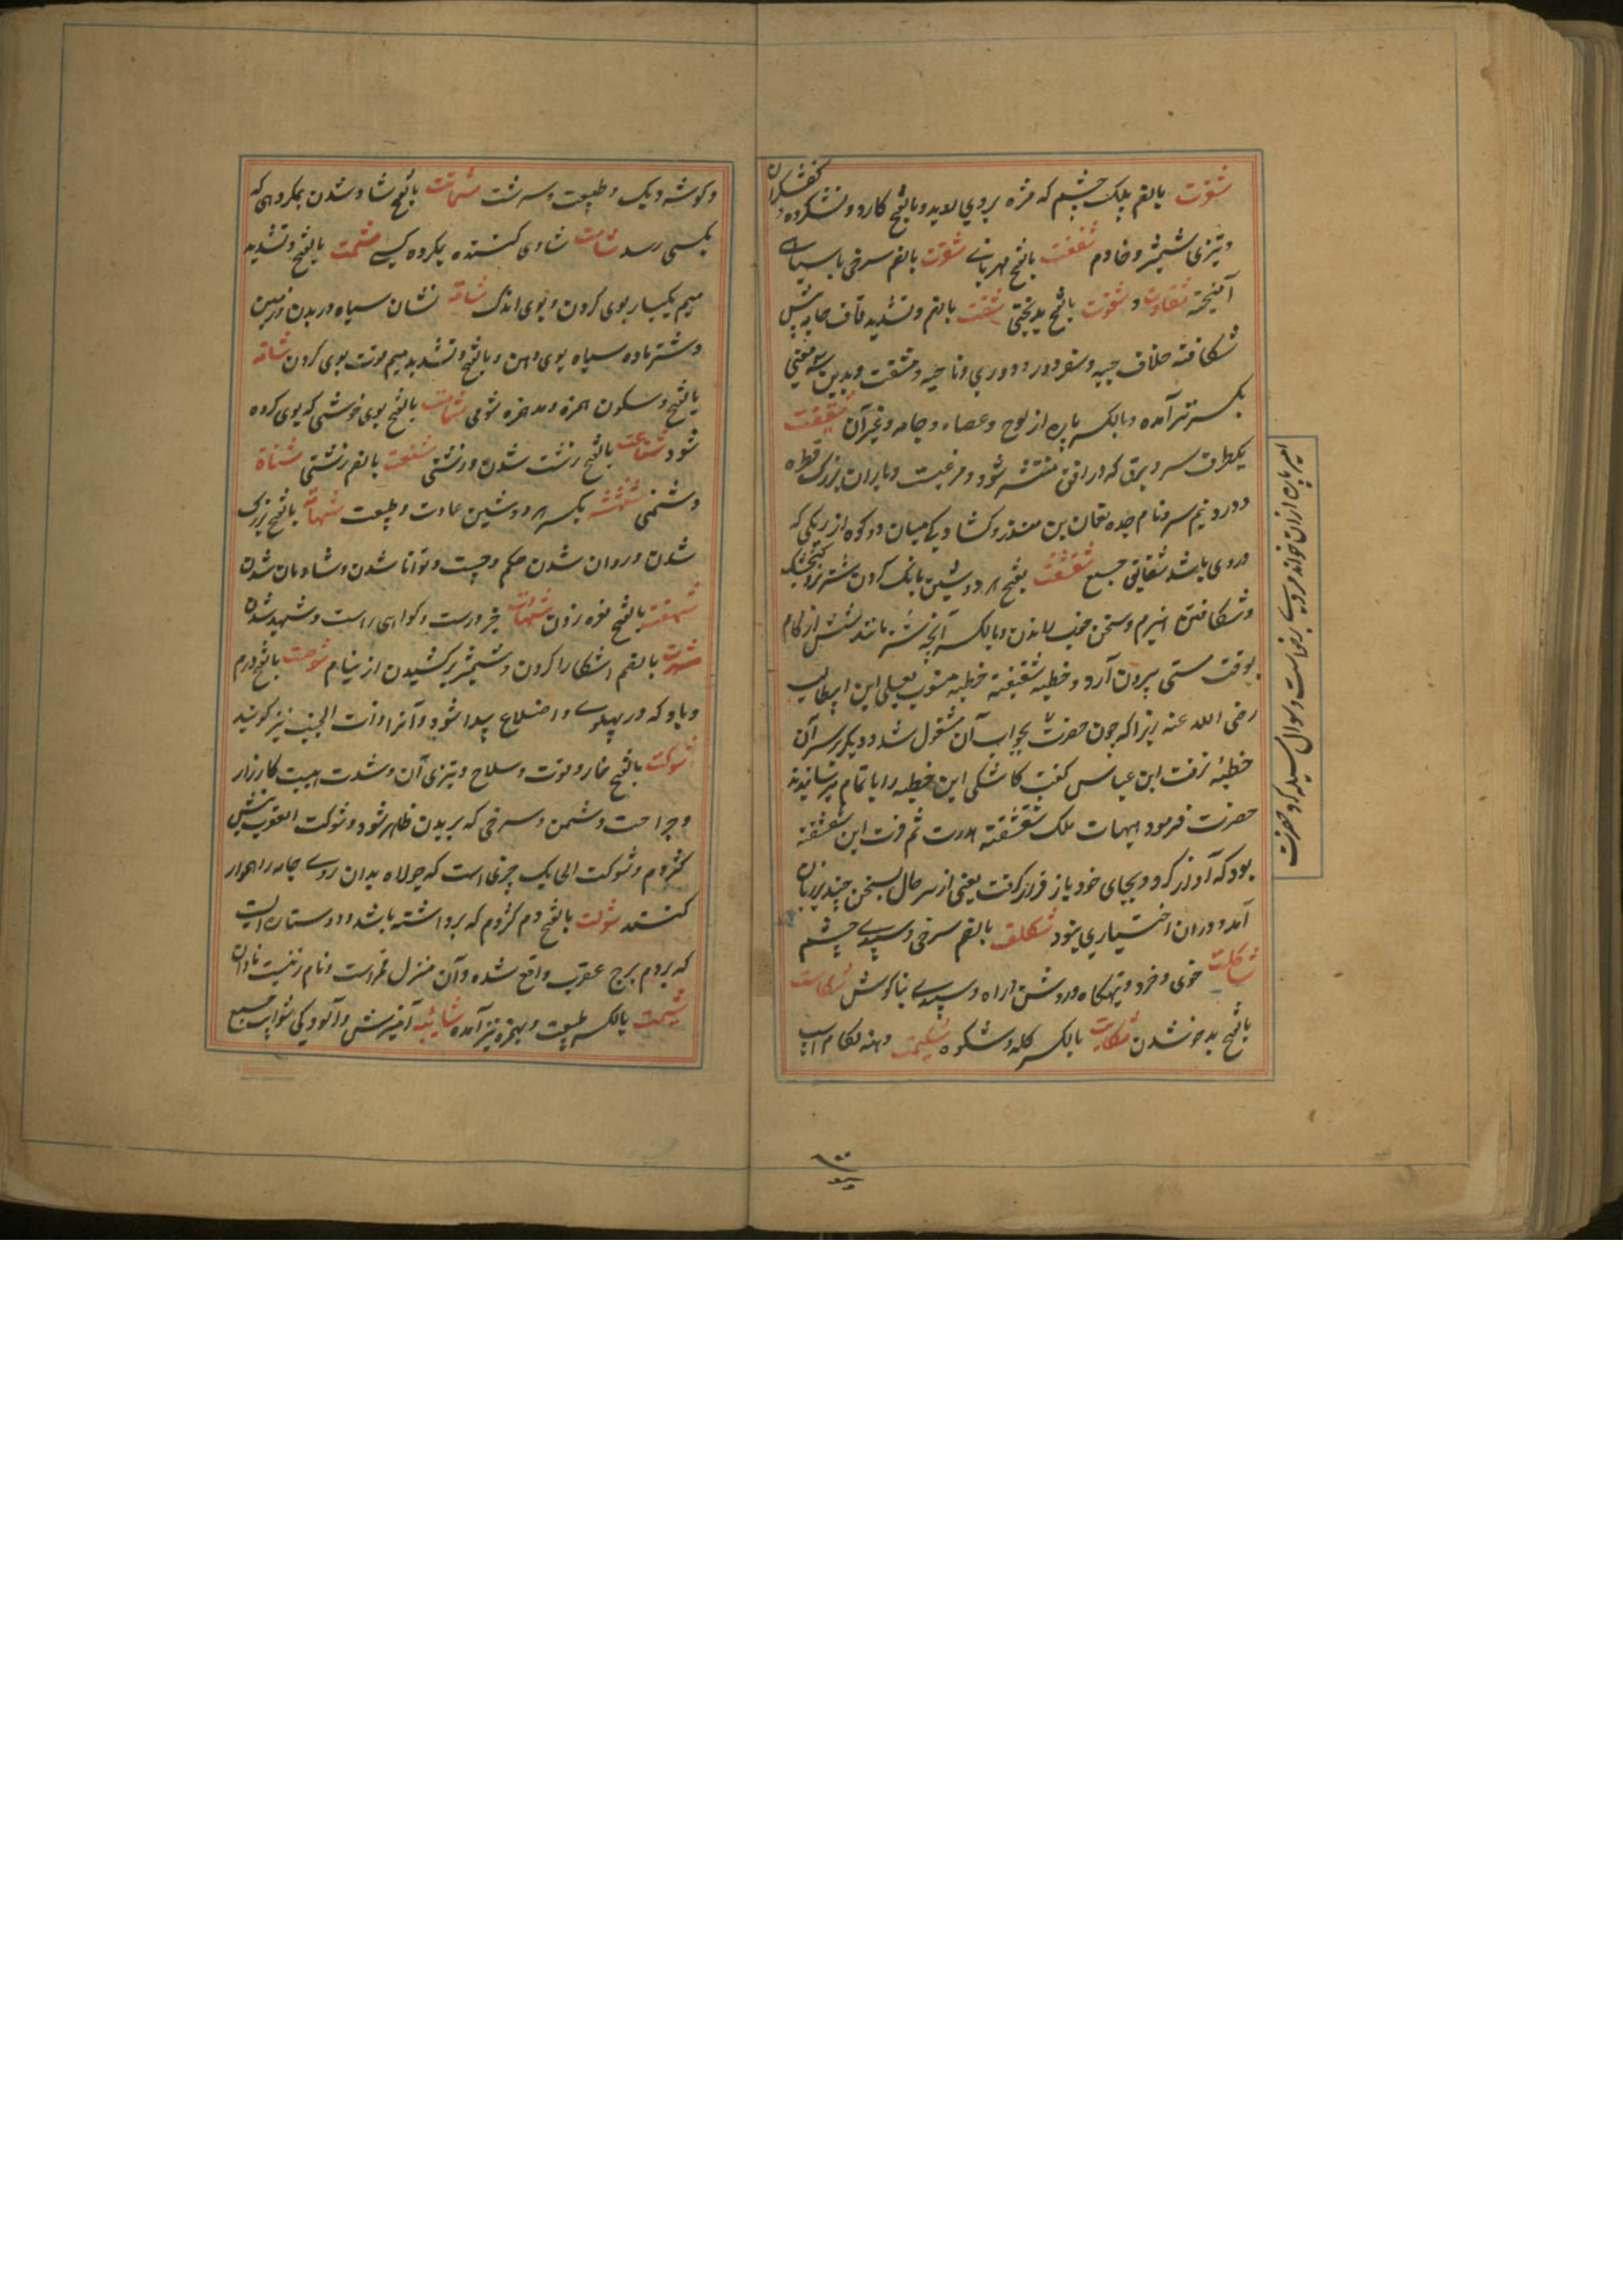 شفرت بالضم پلک چشم که مژه بروی روید و بالفتح کارد و نشکرده کفشگران
و تیزی شمشیر و خادم شفقت بالفتح مهربانی شقرت بالضم سرخی با سیاهی
آمیخته شقاوت و شقوت بالفتح بدبختی شقت بالضم و تشدید قاف جامه پیش
شکافته خلاف جبه و سفر دور و دوری و ناحیه و مشقت و بدین سه معنی
بکسر نیز آمده و بالکسر پاره از لوح و عصا و جامه و غیر آن شقیقت
یکطرف سر و برق که در افق منتشر شود و مرغیست و باران بزرگ قطره
و درد نیم سر و نام جده نعمان بن منذر و کشادگی میان دو کوه از ریگی که
دروی باشد شقایق جمع شقشقت بفتح هر دو شین بانگ کردن شتر و گنجشک
و شکافتن هیزم و سخن خوب راندن و بالکسر آنچه شتر مانند شش از کام
بوقت مستی بیرون آرد و خطبه شقشقیة خطبه منسوب بعلی ابن ابیطالب
رضی الله عنه زیرا که چون حضرت بجواب آن مشغول شد و دیگر بر سر آن
خطبه نرفت ابن عباس گفت کاشکی این خطبه را باتمام میرسانیدند
حضرت فرمود هیهات تلک شقشقة هدرت ثم قرت این شقشقه
بود که آواز کرد و بجای خود باز قرار گرفت یعنی از سر حال سخن چند بر زبان
آمد و در آن اختیاری نبود شکلت بالضم سرخی و سپیدی چشم
شاکلت خوی و خرد و تهیگاه و روش و راه و سپیدی بناگوش شکاست
بالفتح بدخو شدن شکایت بالکسر گله و شکوه شکیمت دهنه لگام اسب
امیر پاره از آن خواند مردی برخواست و سوال کرد حضرت
و گوشه دیگ و طبیعت و سرشت شماتت بالفتح شاد شدن بمکروهی که
بکسی رسد شامت شادی کننده بمکروه کسی شمت بالفتح و تشدید
میم یکبار بوی کردن و بوی اندک شامة نشان سیاه در بدن و زمین
و شتر ماده سیاه بوی دهن و بالفتح و تشدید میم قوت بوی کردن شأمة
بالفتح و سکون همزه و مد همزه شومی شمامت بالفتح بوی خوشی که بوی کرده
شود شناعت بالفتح زشت شدن و زشتی شنعت بالضم زشتی شناة
دشمنی شنشنة بکسر هر دو شین عادت و طبیعت شهامة بالفتح بزرگ
شدن و روان شدن حکم و چست و توانا شدن و شادمان شدن
شهقت بالفتح نعره زدن شهادت خبر درست و گواهی راست و شهید شدن
شهرت بالضم آشکارا کردن و شمشیر برکشیدن از نیام شوصت بالفتح ورم
و باد که در پهلوی و اضلاع پیدا شود و آنرا ذات الجنب نیز گویند
شوکت بالفتح خار و قوت و سلاح و تیزی آن و شدت هیبت کارزار
و جراحت دشمن و سرخی که بر بدن ظاهر شود و شوکت العقرب نیش
کژدم و شوکت الحایک چیزی است که جولاه بدان روی جامه را هموار
کنند شولت بالفتح دم کژدم که برداشته باشد و دو ستاره ایست
که بر دم برج عقرب واقع شده و آن منزل قمر است و نام زنیست نادان
شیمت بالکسر طبیعت و بهمزه نیز آمده شائبه آمیزش و آلودگی شوایب جمع